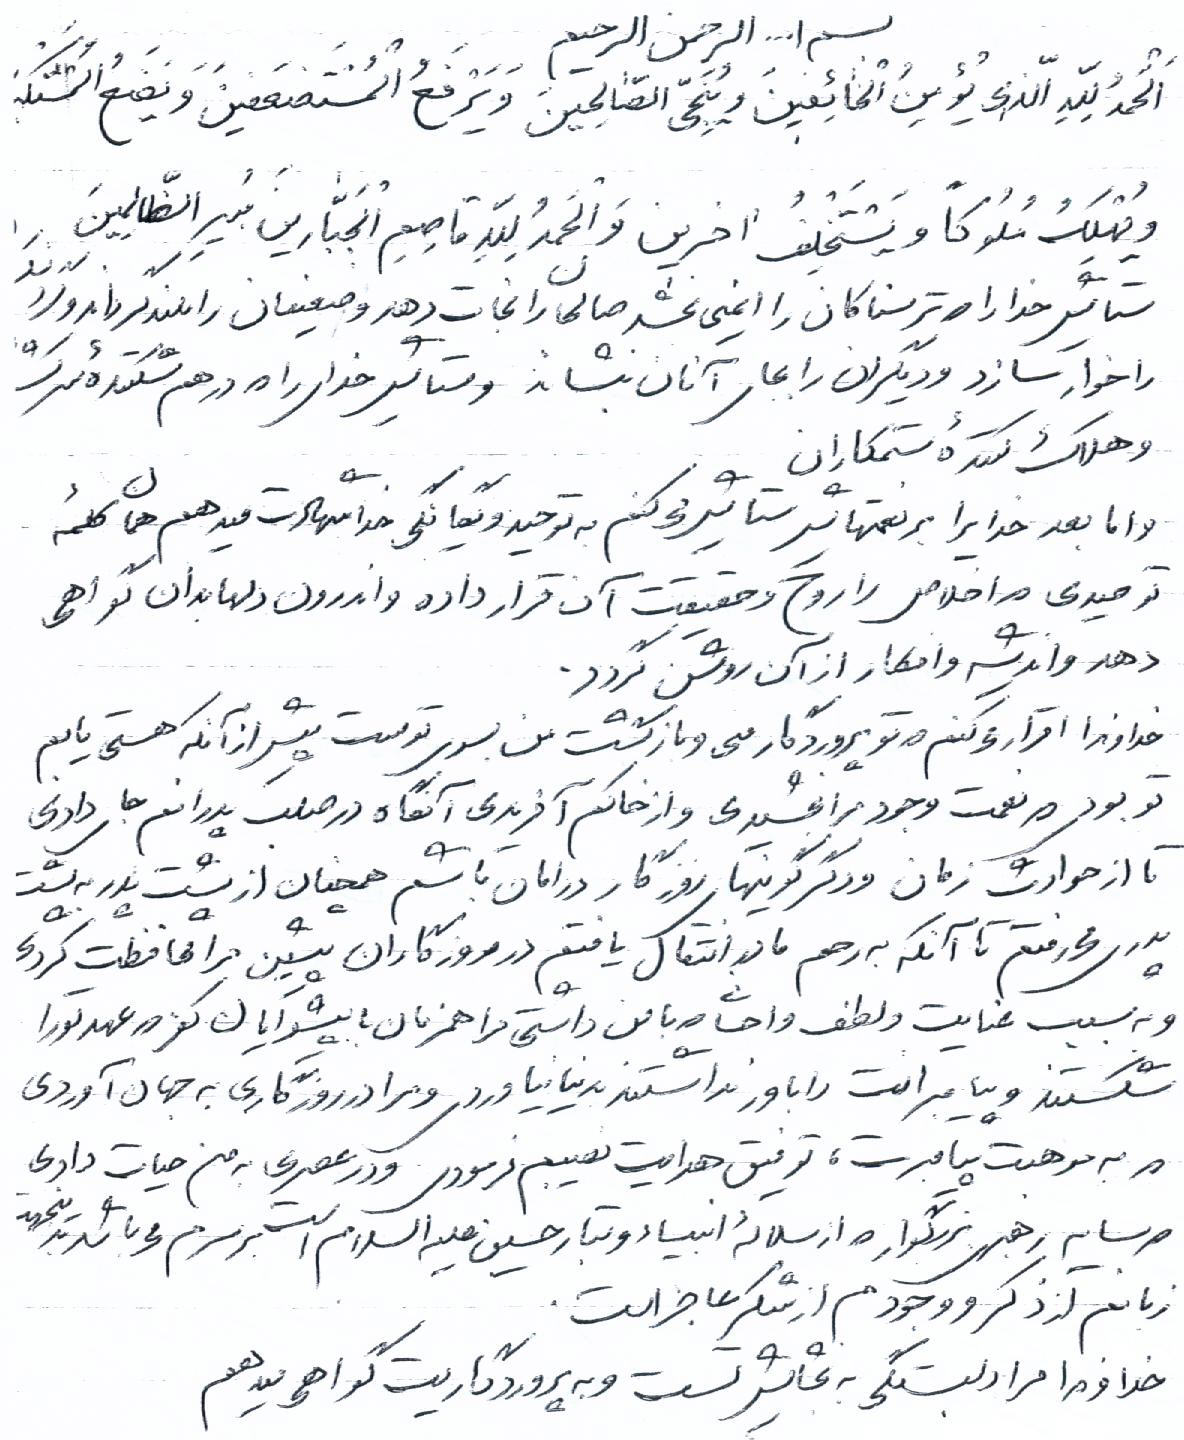 بسم ا... الرحمن الرحیم
اَلْحَمْدُ لِلّهِ الَّذی یُؤْمِنُ الْخائِفینَ وَ یُنَجِّی الصّالِحینَ وَ یَرْفَعُ الْمُسْتَضْعَفینَ وَ یَضَعُ
وَ یُهْلِکُ مُلُوکاً وَ یَسْتَخْلِفُ اخرین وَ الْحَمْدُ لِلّهِ قاصِمِ الْجَبّارینَ مُبیرِ الظّالِمینَ
ستایش خدا را که ترسناکان را ایمنی بخشد صالحان را نجات دهد و ضعیفان را بلند گرداند و
را خوار سازد و دیگران را بجای آنان بنشاند و ستایش خدای را که درهم شکنندهٔ
و هلاک کنندهٔ ستمکاران
و اما بعد خدایرا بر نعمتهایش ستایش می کنم به توحید و یگانگی خدا شهادت میدهم همان کلمهٔ
توحیدی که اخلاص را روح و حقیقت آن قرار داده و اندرون دلها بدان گواهی
دهد و اندیشه و افکار از آن روشن گردد.
خداوندا اقرار می کنم که تو پروردگار منی و بازگشت من بسوی توست پیش از آنکه هستی یابم
تو بودی که نعمت وجود مرا بخشیدی و از خاکم آفریدی آنگاه در صلب پدرانم جای دادی
تا از حوادث زمان و دگرگونیهای روزگار در امان باشم همچنان از پشت پدر به پشت
پدری می رفتم تا آنکه به رحم مادر انتقال یافتم در روزگاران پیشین مرا محافظت کردی
و به سبب عنایت و لطف و احسان که با من داشتی مرا همزمان با پیشوایان کفر که عهد تو را
شکستند و پیامبرانت را باور نداشتند بدنیا نیاوردی و مرا در روزگاری به جهان آوردی
که به موهبت پیامبرت، توفیق هدایت نصیبم فرمودی و در عصری به من حیات دادی
که سایه رهبری بزرگوار که از سلالهٔ انبیاء و تبار حسین علیه السلام است بر سرم می باشد
زبانم از ذکر و وجودم از شکر عاجز است.
خداوندا مرا دلبستگی به بخشایش تست و به پروردگاریت گواهی میدهم